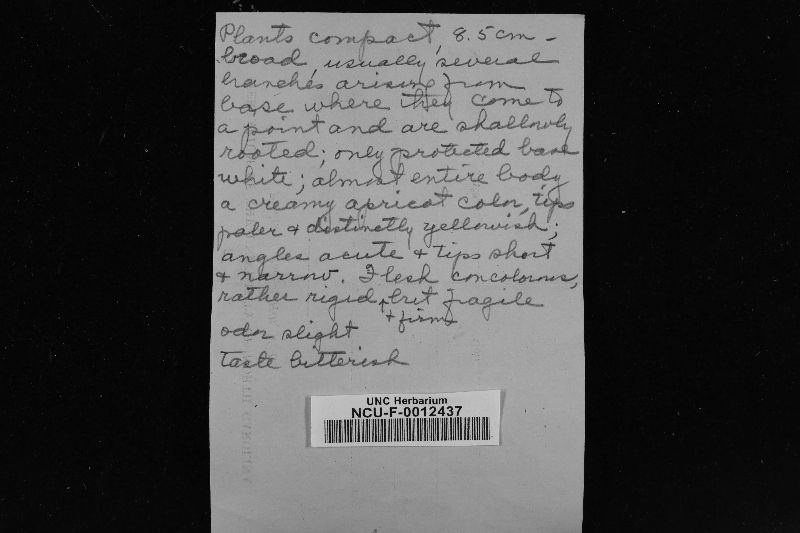 Plants compact, 8.5 cm -
broad, usually several
branches arising from
base where they come to
a point and are shallowly
rooted; only protected base
white; almost entire body
a creamy apricot color, tips
paler & distinctly yellowish;
angles acute & tips short
& narrow. Flesh concolorous,
rather rigid, but fragile
& firm
odor slight
taste bitterish
UNC Herbarium
NCU-F-0012437